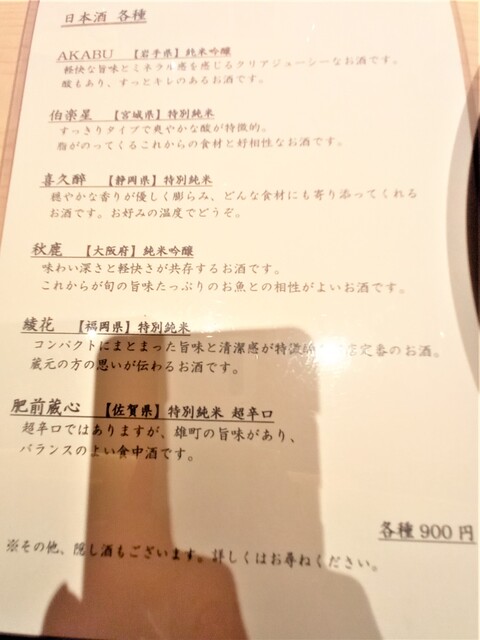 日本酒 各種
AKABU 【岩手県】純米吟醸
軽快な旨味とミネラル感を感じるクリアジューシーなお酒です。
酸もあり、すっとキレのあるお酒です。
伯楽星 【宮城県】特別純米
すっきりタイプで爽やかな酸が特徴的。
脂がのってくるこれからの食材と好相性なお酒です。
喜久醉 【静岡県】特別純米
穏やかな香りが優しく膨らみ、どんな食材にも寄り添ってくれる
お酒です。お好みの温度でどうぞ。
秋鹿 【大阪府】純米吟醸
味わい深さと軽快さが共存するお酒です。
これからが旬の旨味たっぷりのお魚との相性がよいお酒です。
綾花 【福岡県】特別純米
コンパクトにまとまった旨味と清潔感が特徴 店定番のお酒。
蔵元の方の思いが伝わるお酒です。
肥前蔵心 【佐賀県】特別純米 超辛口
超辛口ではありますが、雄町の旨味があり、
バランスのよい食中酒です。
各種 900 円
※その他、隠し酒もございます。詳しくはお尋ねください。